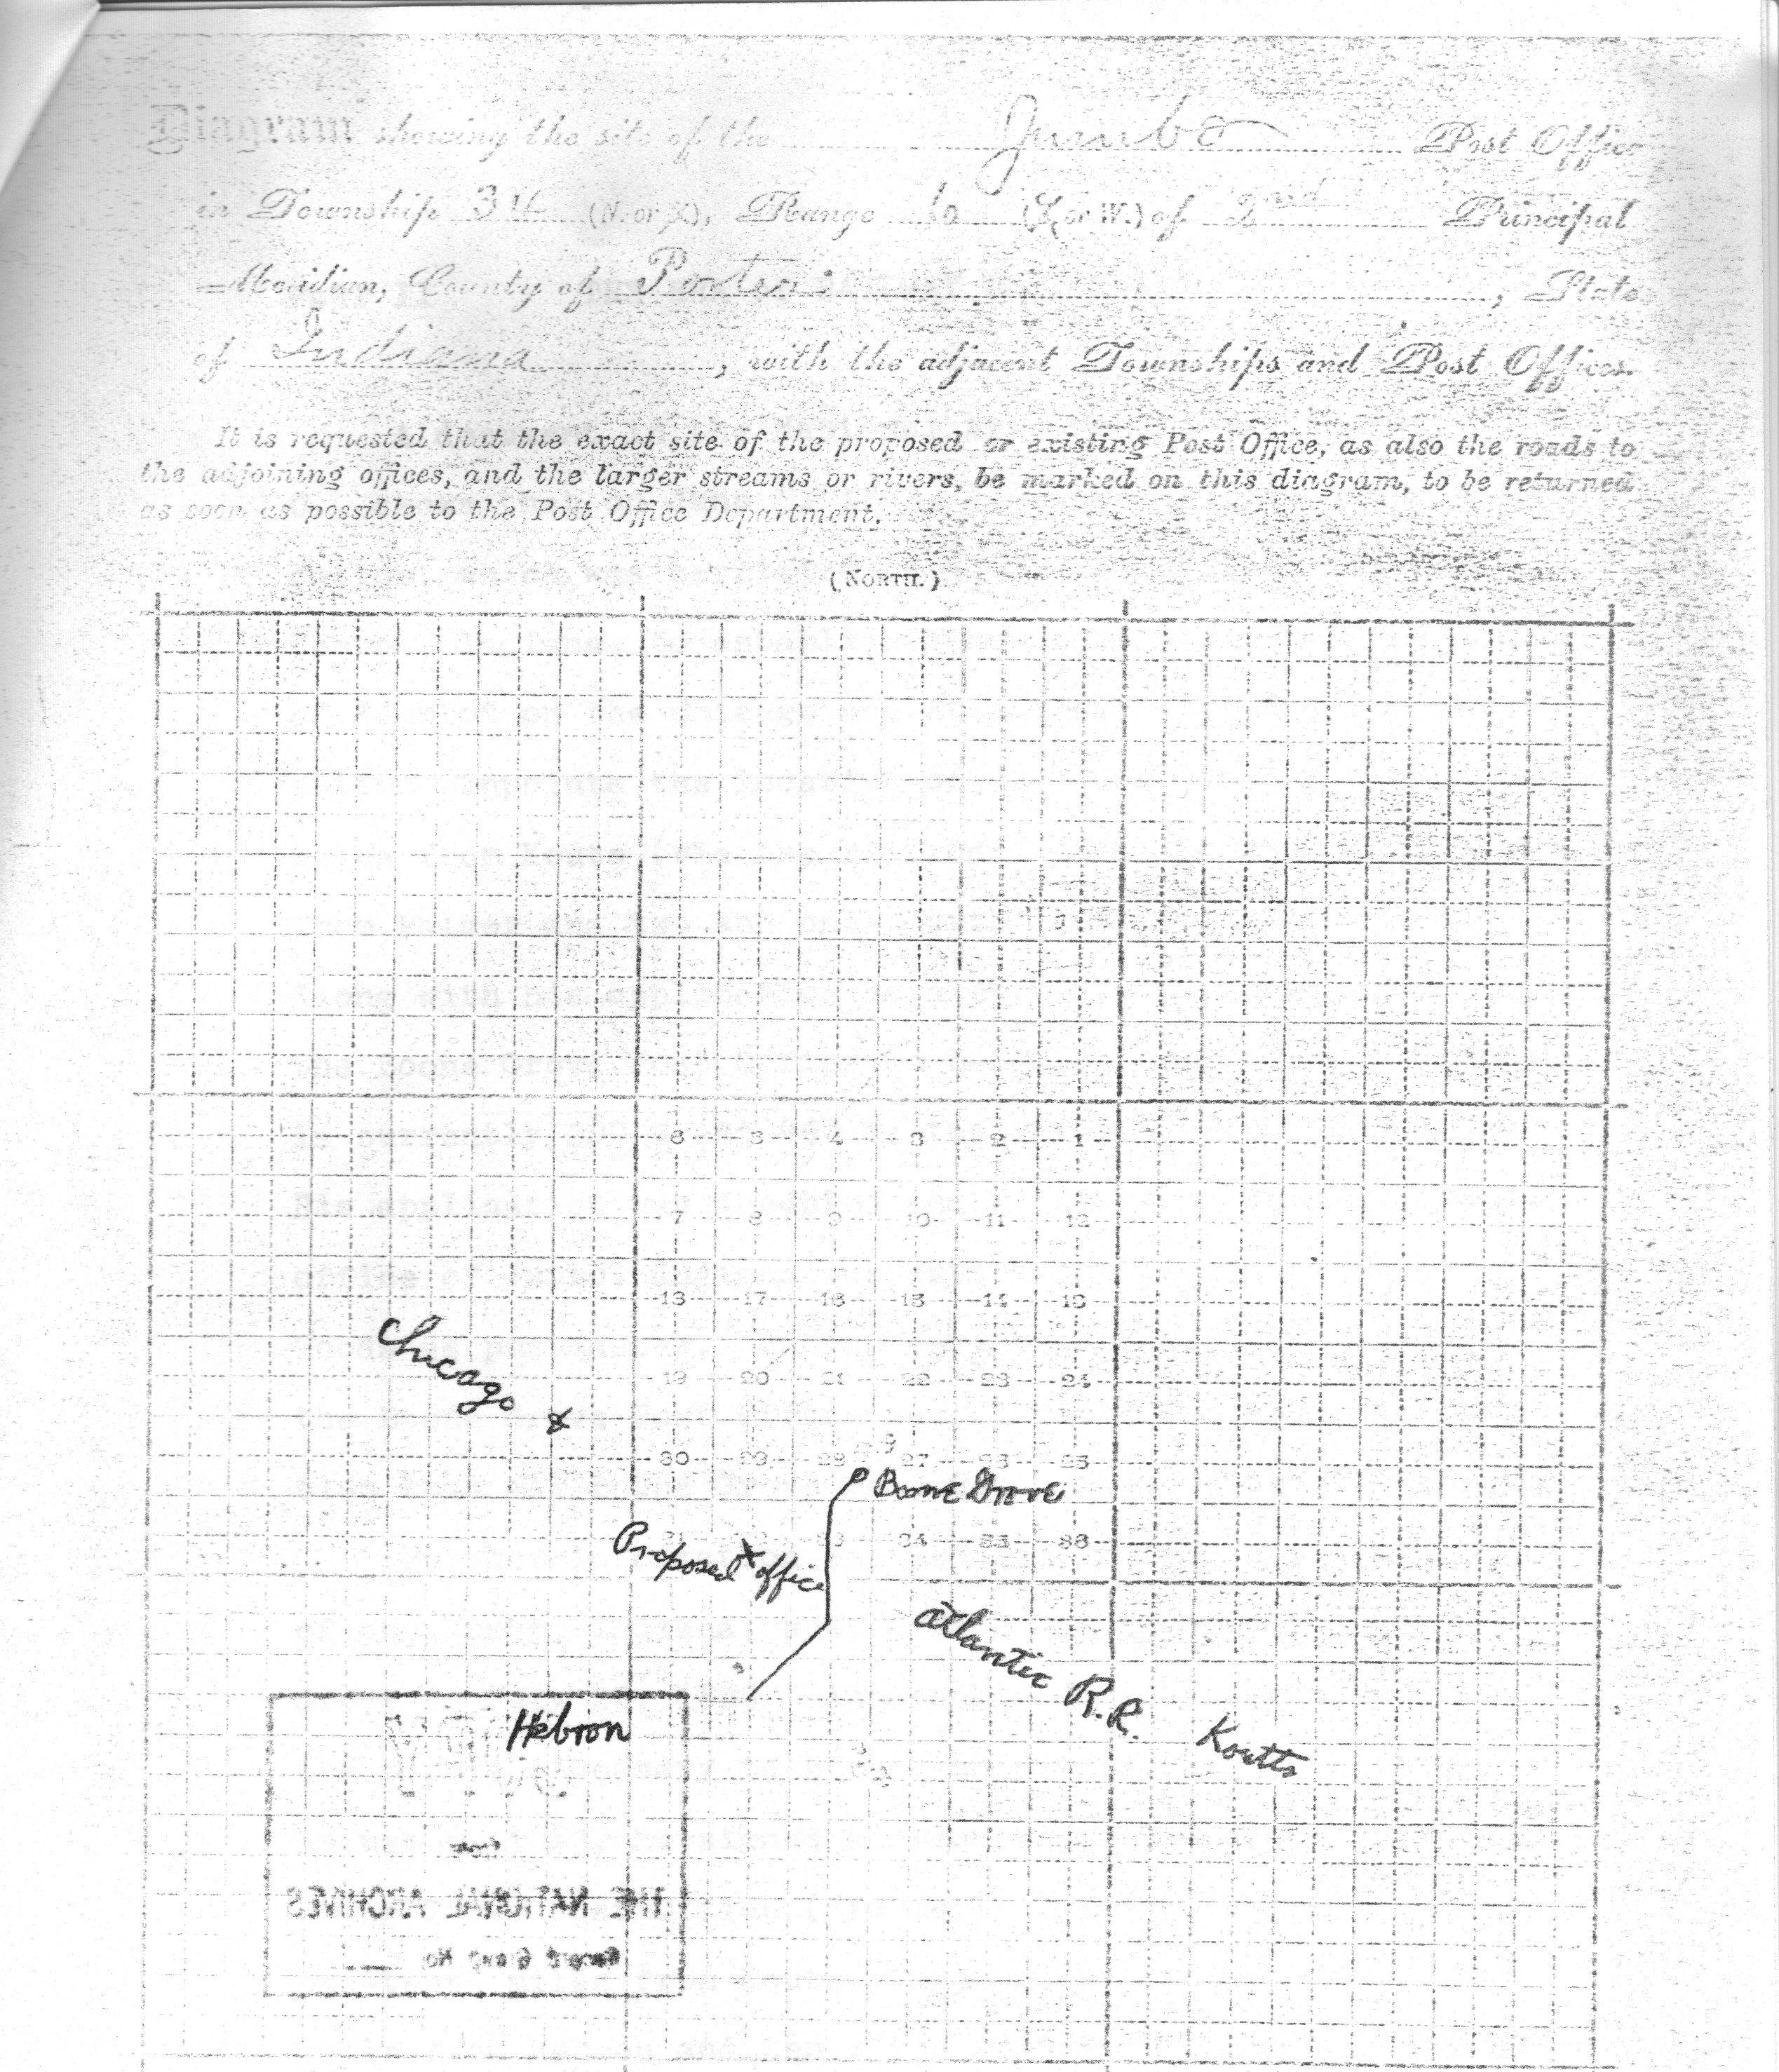 Diagram showing the site of the Jumbo Post Office
in Township 34 (N. or S.), Range 6 (E. or W.) of 2nd Principal
Meridian, County of Porter, State
of Indiana, with the adjacent Townships and Post Offices.
It is requested that the exact site of the proposed or existing Post Office, as also the roads to
the adjoining offices, and the larger streams or rivers, be marked on this diagram, to be returned
as soon as possible to the Post Office Department.
(NORTH.)
6 5 4 3 2 1
7 8 9 10 11 12
18 17 16 15 14 13
19 20 21 22 23 24
Chicago &
30 29 28 27 26 25
Boone Grove
34 35 36
Proposed x office
Atlantic R.R.
Koutts
Hebron
from
THE NATIONAL ARCHIVES
Record Group No.